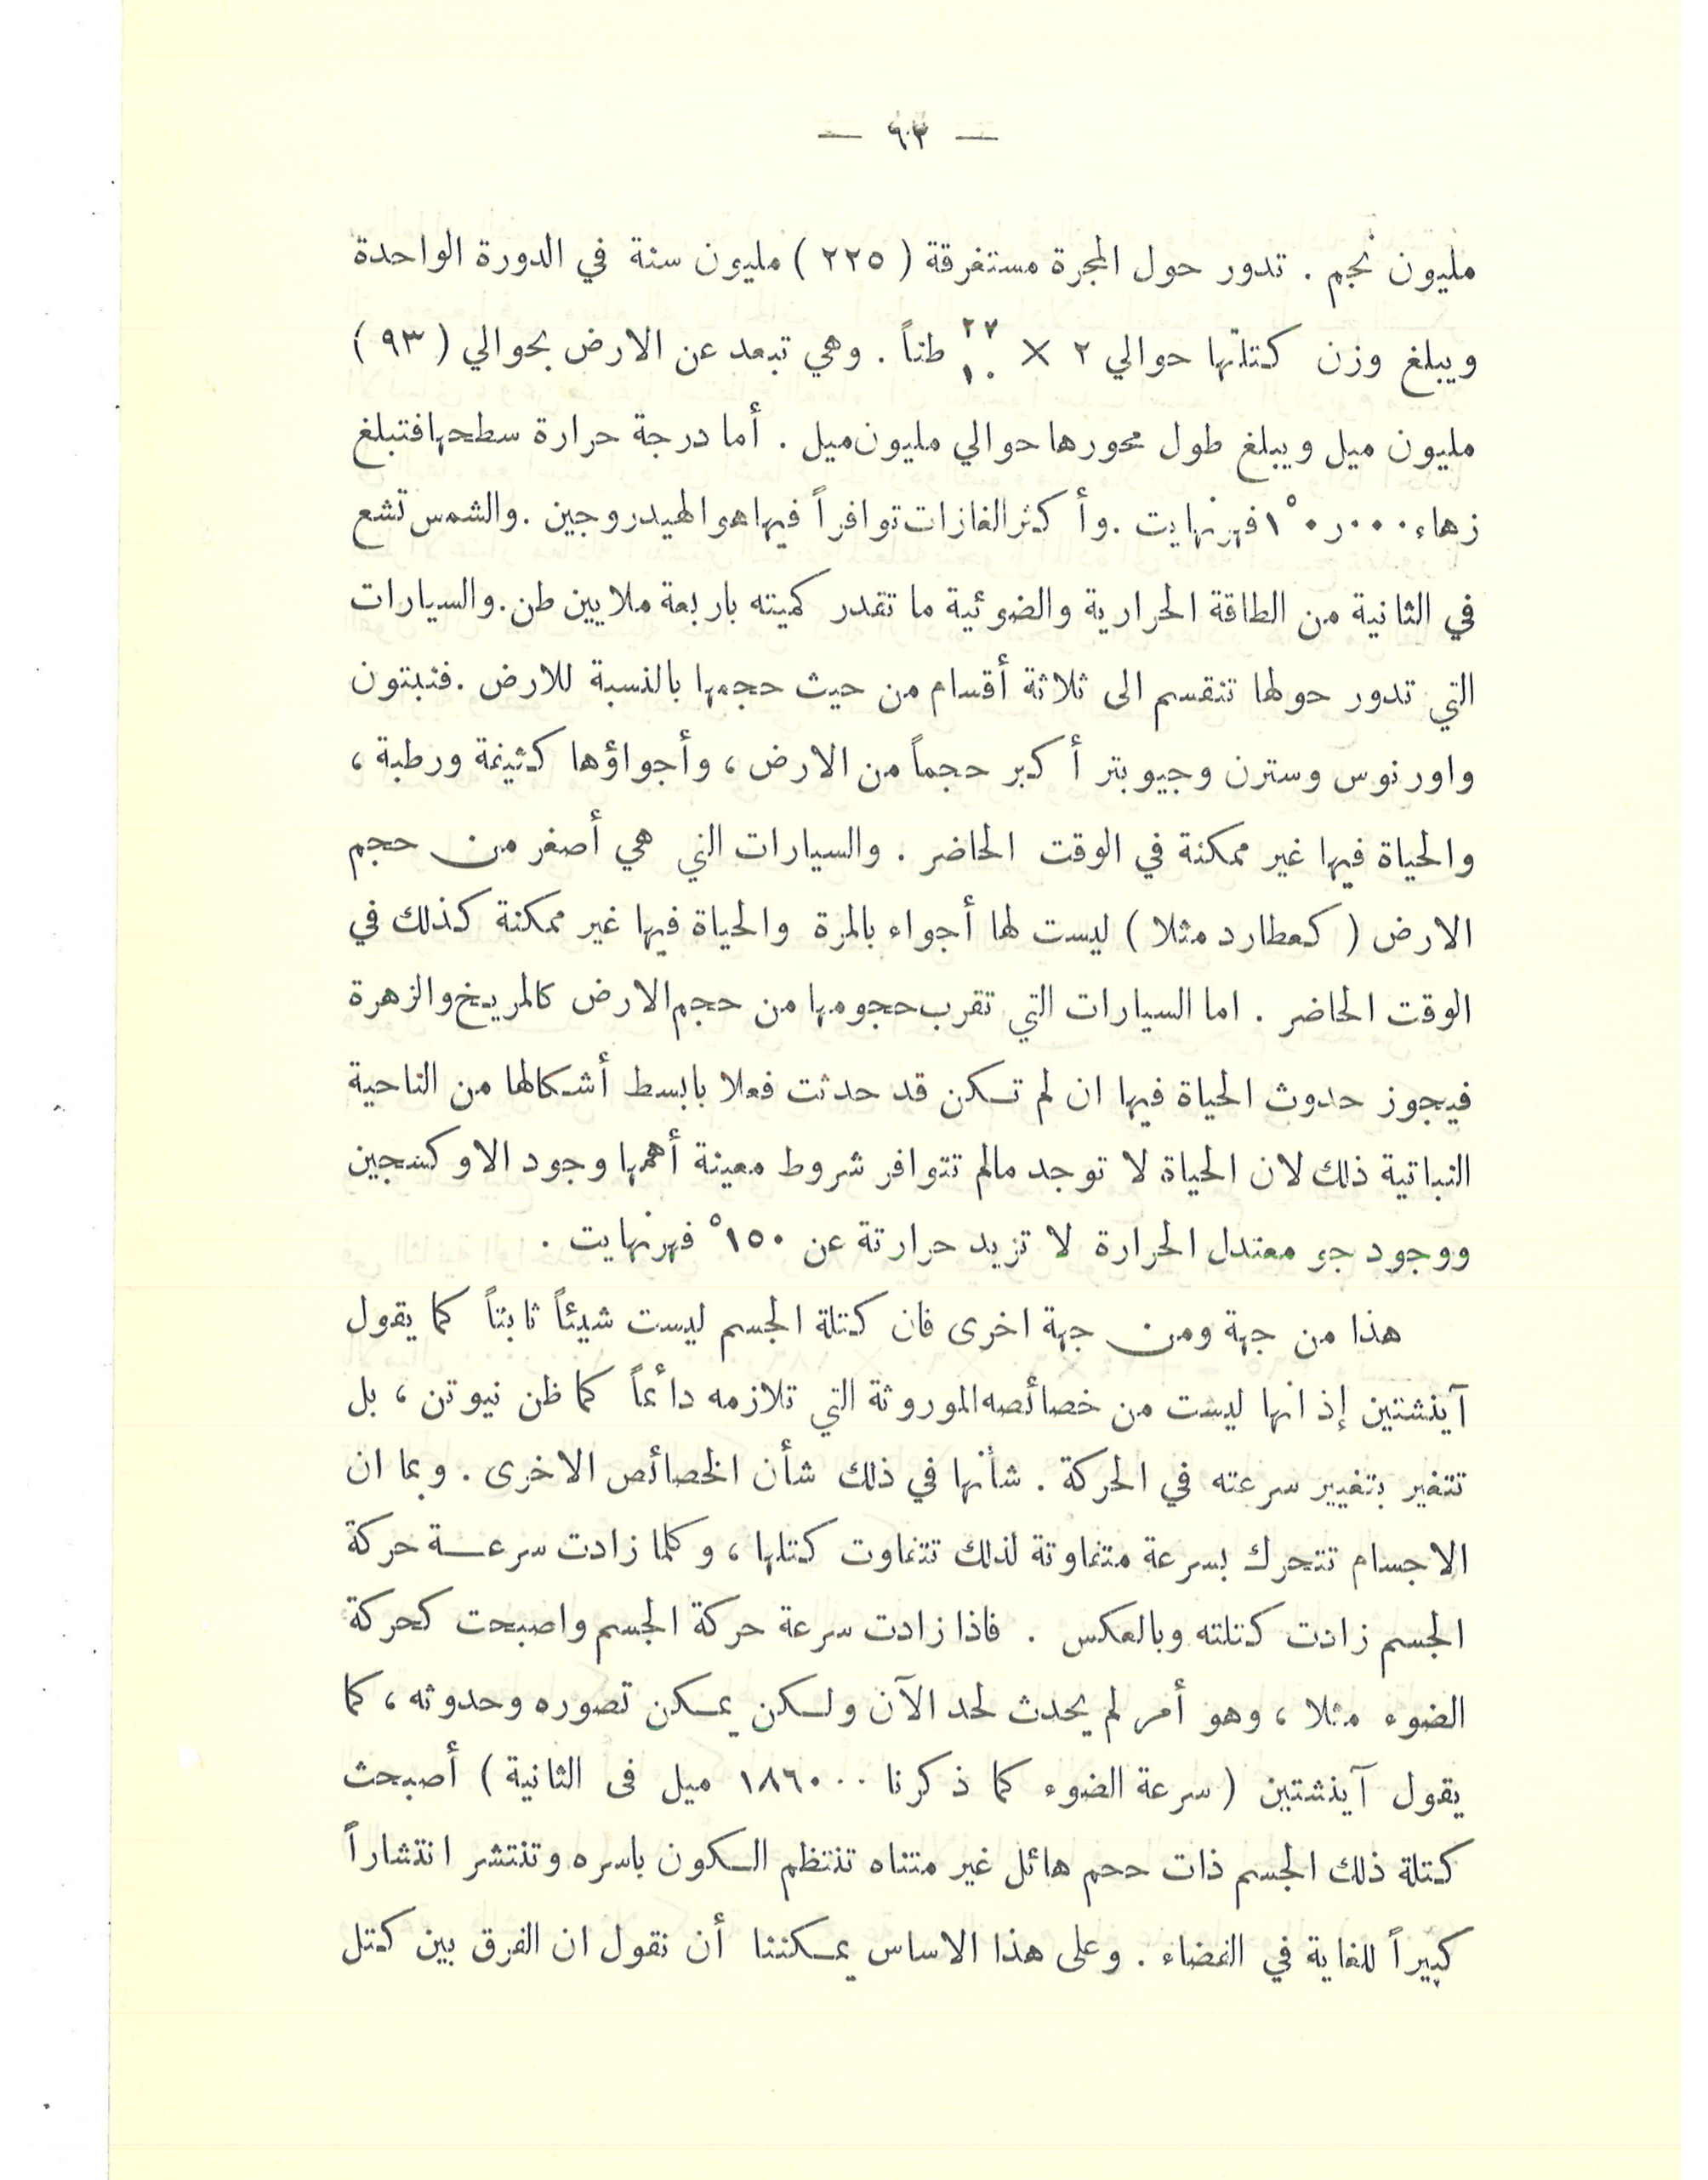 — ٦٣ —
مليون نجم . تدور حول المجرة مستغرقة ( ٢٢٥ ) مليون سنة في الدورة الواحدة
ويبلغ وزن كتلتها حوالي ٢ × ١٠^٢٧ طناً . وهي تبعد عن الارض بحوالي ( ٩٣ )
مليون ميل ويبلغ طول محورها حوالي مليون ميل . أما درجة حرارة سطحها فتبلغ
زهاء ١٠ر٠٠٠° فهرنهايت . وأكثر الغازات توافراً فيها هو الهيدروجين . والشمس تشع
في الثانية من الطاقة الحرارية والضوئية ما تقدر كميته باربعة ملايين طن . والسيارات
التي تدور حولها تنقسم الى ثلاثة أقسام من حيث حجمها بالنسبة للارض . فنبتون
واورنوس وسترن وجيوبتر أكبر حجماً من الارض ، وأجواؤها كثيفة ورطبة ،
والحياة فيها غير ممكنة في الوقت الحاضر . والسيارات التي هي أصغر من حجم
الارض ( كعطارد مثلا ) ليست لها أجواء بالمرة والحياة فيها غير ممكنة كذلك في
الوقت الحاضر . اما السيارات التي تقرب حجومها من حجم الارض كالمريخ والزهرة
فيجوز حدوث الحياة فيها ان لم تكن قد حدثت فعلا بابسط أشكالها من الناحية
النباتية ذلك لان الحياة لا توجد مالم تتوافر شروط معينة أهمها وجود الاوكسجين
ووجود جو معتدل الحرارة لا تزيد حرارتة عن ١٥٠° فهرنهايت .
هذا من جهة ومن جهة اخرى فان كتلة الجسم ليست شيئاً ثابتاً كما يقول
آينشتين إذ انها ليست من خصائصه الموروثة التي تلازمه دائماً كما ظن نيوتن ، بل
تتغير بتغيير سرعته في الحركة . شأنها في ذلك شأن الخصائص الاخرى . وبما ان
الاجسام تتحرك بسرعة متفاوتة لذلك تتفاوت كتلها ، وكلما زادت سرعة حركة
الجسم زادت كتلته وبالعكس . فاذا زادت سرعة حركة الجسم واصبحت كحركة
الضوء مثلا ، وهو أمر لم يحدث لحد الآن ولكن يمكن تصوره وحدوثه ، كما
يقول آينشتين ( سرعة الضوء كما ذكرنا ١٨٦٠٠٠ ميل فى الثانية ) أصبحث
كتلة ذلك الجسم ذات ححم هائل غير متناه تنتظم الكون باسره وتنتشر انتشاراً
كبيراً للغاية في الفضاء . وعلى هذا الاساس يمكننا أن نقول ان الفرق بين كتل